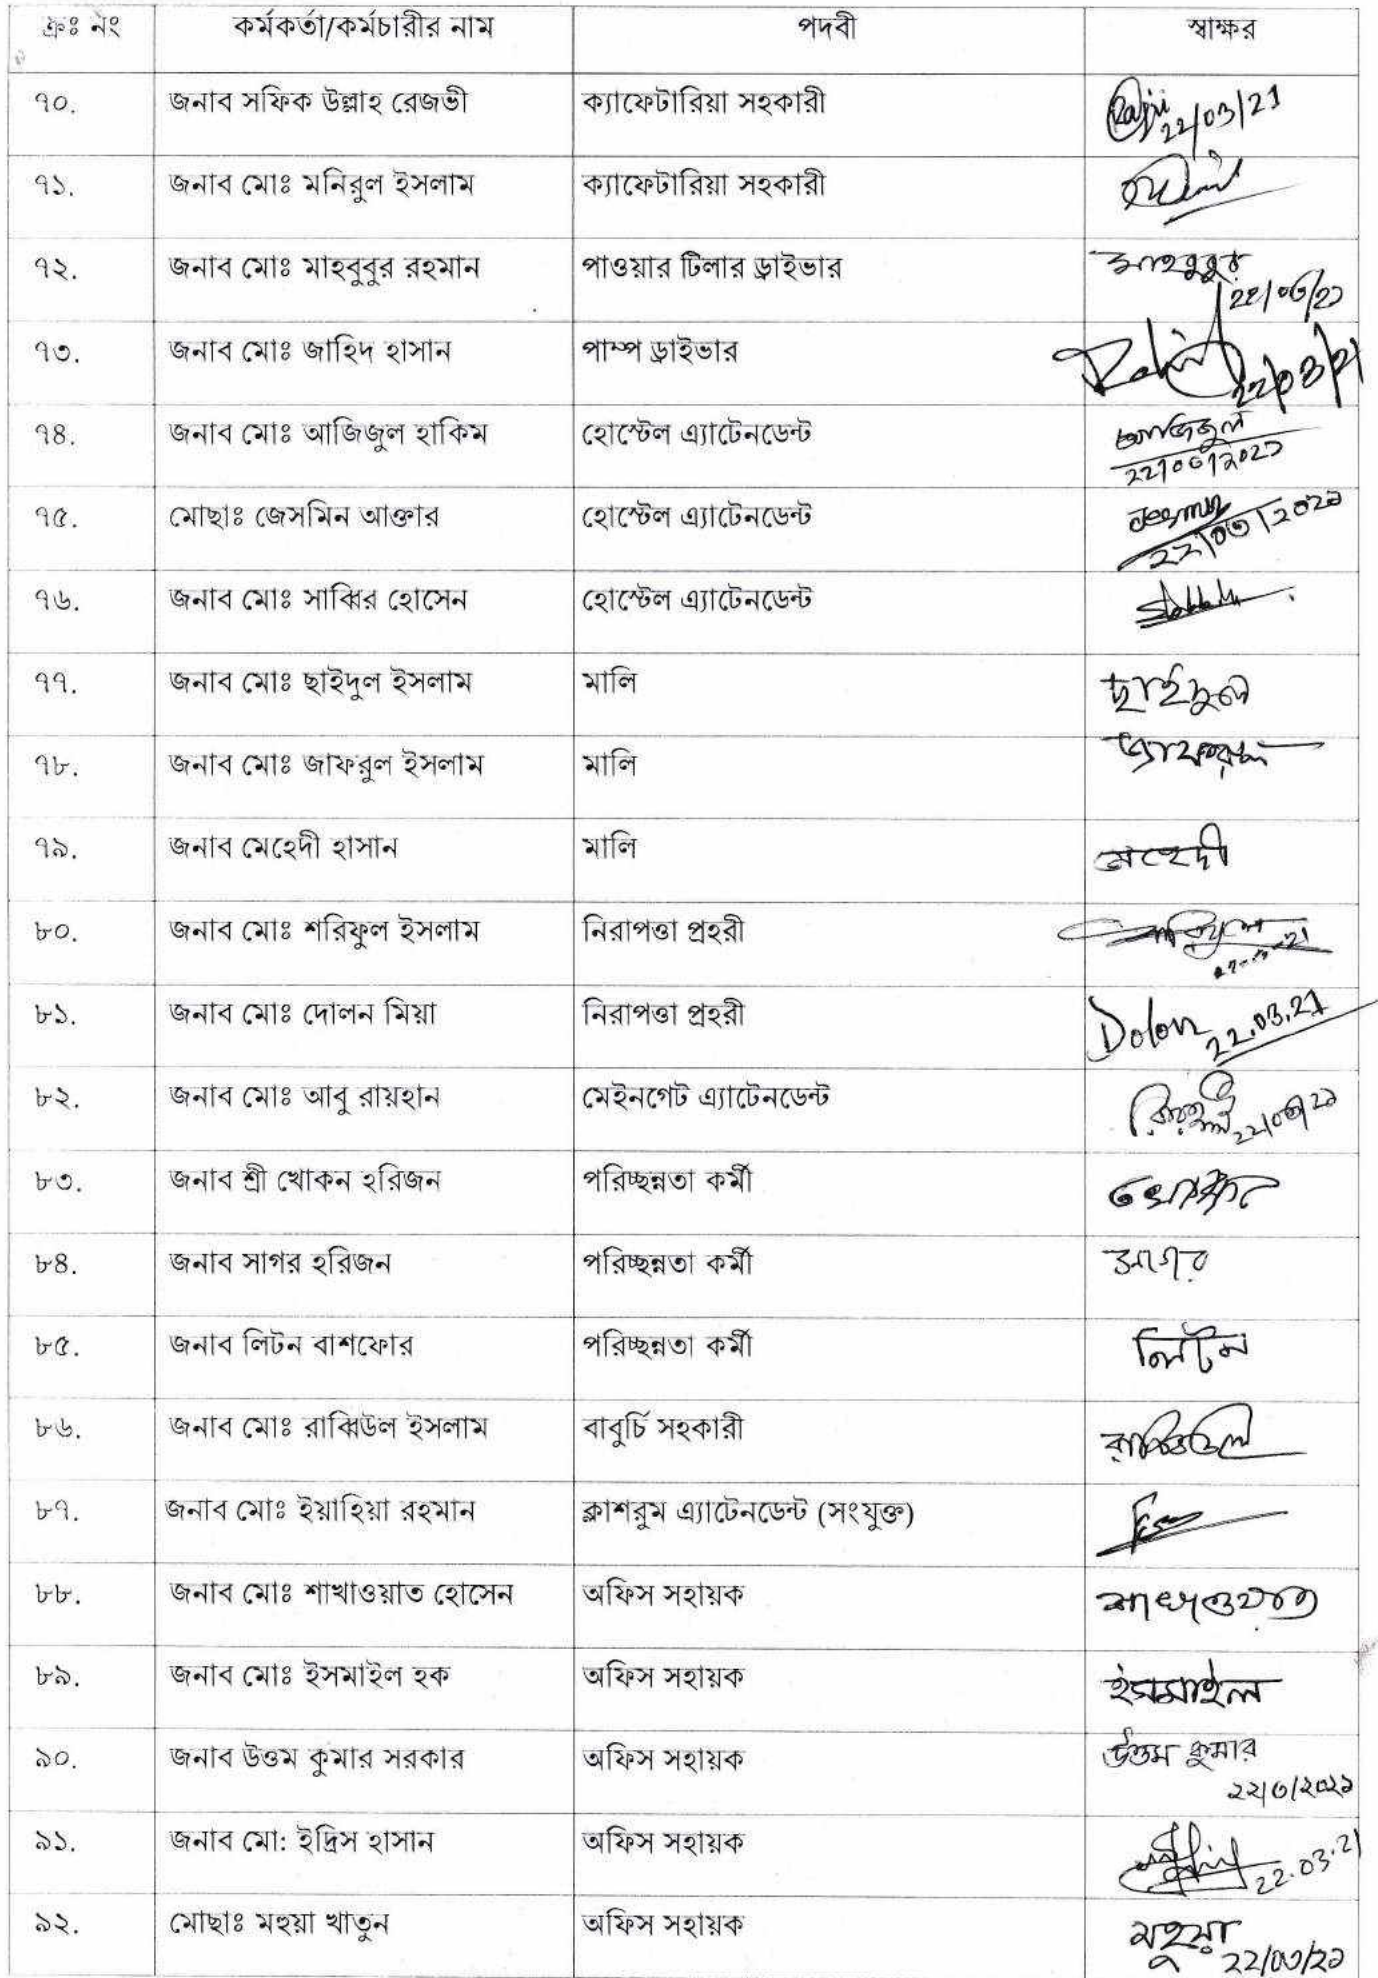 ক্রঃ নং কর্মকর্তা/কর্মচারীর নাম পদবী স্বাক্ষর
৭০. জনাব সফিক উল্লাহ রেজভী ক্যাফেটারিয়া সহকারী 22/03/21
৭১. জনাব মোঃ মনিরুল ইসলাম ক্যাফেটারিয়া সহকারী
৭২. জনাব মোঃ মাহবুবুর রহমান পাওয়ার টিলার ড্রাইভার মাহবুবুর
২২/০৩/২১
৭৩. জনাব মোঃ জাহিদ হাসান পাম্প ড্রাইভার 22/03/21
৭৪. জনাব মোঃ আজিজুল হাকিম হোস্টেল এ্যাটেনডেন্ট আজিজুল
২২/০৩/২০২১
৭৫. মোছাঃ জেসমিন আক্তার হোস্টেল এ্যাটেনডেন্ট Jesmin
২২/০৩/২০২১
৭৬. জনাব মোঃ সাব্বির হোসেন হোস্টেল এ্যাটেনডেন্ট
৭৭. জনাব মোঃ ছাইদুল ইসলাম মালি ছাইদুল
৭৮. জনাব মোঃ জাফরুল ইসলাম মালি জাফরুল
৭৯. জনাব মেহেদী হাসান মালি মেহেদী
৮০. জনাব মোঃ শরিফুল ইসলাম নিরাপত্তা প্রহরী শরিফুল
৮১. জনাব মোঃ দোলন মিয়া নিরাপত্তা প্রহরী Dolon 22.03.21
৮২. জনাব মোঃ আবু রায়হান মেইনগেট এ্যাটেনডেন্ট ২২/০৩/২১
৮৩. জনাব শ্রী খোকন হরিজন পরিচ্ছন্নতা কর্মী খোকন
৮৪. জনাব সাগর হরিজন পরিচ্ছন্নতা কর্মী সাগর
৮৫. জনাব লিটন বাশফোর পরিচ্ছন্নতা কর্মী লিটন
৮৬. জনাব মোঃ রাব্বিউল ইসলাম বাবুর্চি সহকারী রাব্বিউল
৮৭. জনাব মোঃ ইয়াহিয়া রহমান ক্লাশরুম এ্যাটেনডেন্ট (সংযুক্ত)
৮৮. জনাব মোঃ শাখাওয়াত হোসেন অফিস সহায়ক শাখাওয়াত
৮৯. জনাব মোঃ ইসমাইল হক অফিস সহায়ক ইসমাইল
৯০. জনাব উত্তম কুমার সরকার অফিস সহায়ক উত্তম কুমার
২২/৩/২০২১
৯১. জনাব মো: ইদ্রিস হাসান অফিস সহায়ক 22.03.21
৯২. মোছাঃ মহুয়া খাতুন অফিস সহায়ক মহুয়া
২২/০৩/২১